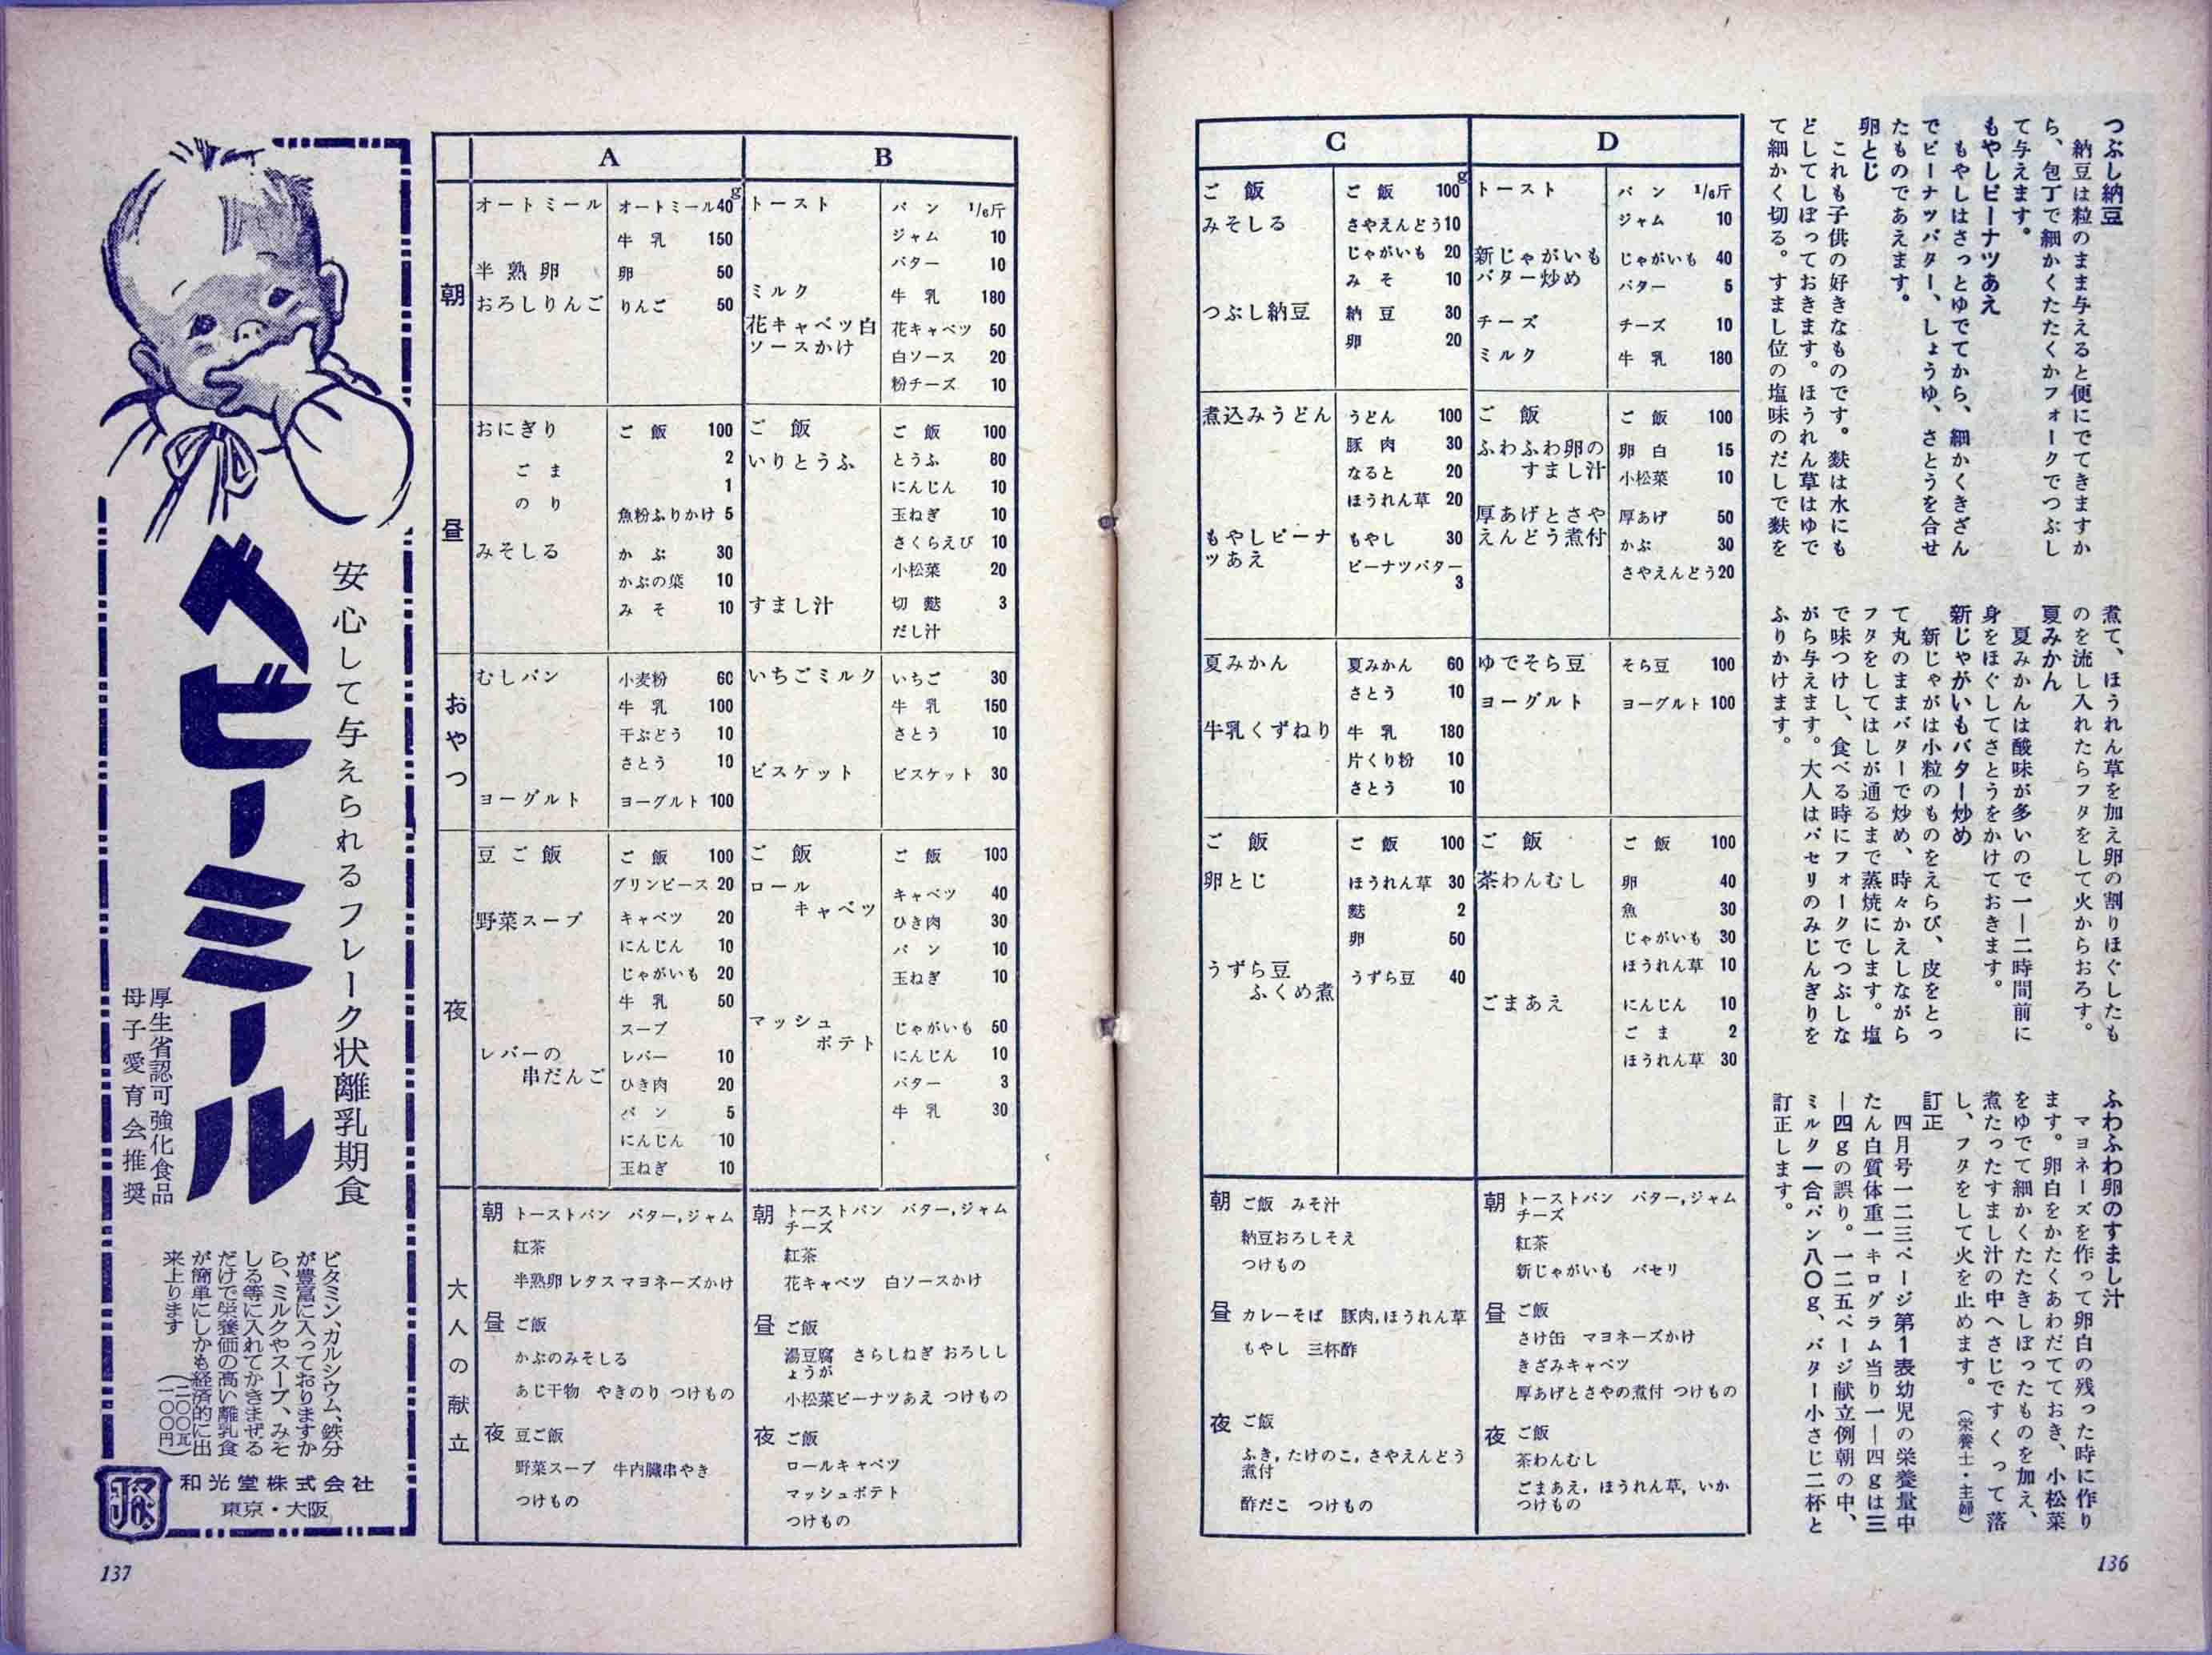 つぶし納豆
納豆は粒のまま与えると便にでてきますか
ら、包丁で細かくたたくかフォークでつぶし
て与えます。
もやしピーナツあえ
もやしはさっとゆでてから、細かくきざん
でピーナッツバター、しょうゆ、さとうを合せ
たものであえます。
卵とじ
これも子供の好きなものです。麩は水にも
どしてしぼっておきます。ほうれん草はゆで
て細かく切る。すまし位の塩味のだしで麩を
煮て、ほうれん草を加え卵の割りほぐしたも
のを流し入れたらフタをして火からおろす。
夏みかん
夏みかんは酸味が多いので一―二時間前に
身をほぐしてさとうをかけておきます。
新じゃがいもバター炒め
新じゃがは小粒のものをえらび、皮をとっ
て丸のままバターで炒め、時々かえしながら
フタをしてはしが通るまで蒸焼にします。塩
で味つけし、食べる時にフォークでつぶしな
がら与えます。大人はパセリのみじんぎりを
ふりかけます。
ふわふわ卵のすまし汁
マヨネーズを作って卵白の残った時に作り
ます。卵白をかたくあわだてておき、小松菜
をゆでて細かくたたきしぼったものを加え、
煮たったすまし汁の中へさじですくって落
し、フタをして火を止めます。
(栄養士・主婦)
訂正
四月号一二三ページ第1表幼児の栄養量中
たん白質体重一キログラム当り一―四gは三
―四gの誤り。一二五ページ献立例朝の中、
ミルク一合パン八〇g、バター小さじ二杯と
訂正します。
C
ご飯 ご飯 100g
みそしる さやえんどう 10
じゃがいも 20
みそ 10
つぶし納豆 納豆 30
卵 20
煮込みうどん うどん 100
豚肉 30
なると 20
ほうれん草 20
もやしピーナ もやし 30
ッあえ ピーナツバター
3
夏みかん 夏みかん 60
さとう 10
牛乳くずねり 牛乳 180
片くり粉 10
さとう 10
ご飯 ご飯 100
卵とじ ほうれん草 30
麩 2
卵 50
うずら豆
ふくめ煮 うずら豆 40
朝 ご飯 みそ汁
納豆おろしそえ
つけもの
昼 カレーそば 豚肉,ほうれん草
もやし 三杯酢
夜 ご飯
ふき,たけのこ,さやえんどう
煮付
酢だこ つけもの
D
トースト パン 1/6斤
ジャム 10
新じゃがいも じゃがいも 40
バター炒め バター 5
チーズ チーズ 10
ミルク 牛乳 180
ご飯 ご飯 100
ふわふわ卵の 卵白 15
すまし汁 小松菜 10
厚あげとさや 厚あげ 50
えんどう煮付 かぶ 30
さやえんどう 20
ゆでそら豆 そら豆 100
ヨーグルト ヨーグルト 100
ご飯 ご飯 100
茶わんむし 卵 40
魚 30
じゃがいも 30
ほうれん草 10
ごまあえ にんじん 10
ごま 2
ほうれん草 30
朝 トーストパン バター,ジャム
チーズ
紅茶
新じゃがいも パセリ
昼 ご飯
さけ缶 マヨネーズかけ
きざみキャベツ
厚あげとさやの煮付 つけもの
夜 ご飯
茶わんむし
ごまあえ,ほうれん草,いか
つけもの
136
A
朝
オートミール オートミール 40g
牛乳 150
半熟卵 卵 50
おろしりんご りんご 50
昼
おにぎり ご飯 100
ごま 2
のり 1
魚粉ふりかけ 5
みそしる かぶ 30
かぶの葉 10
みそ 10
おやつ
むしパン 小麦粉 60
牛乳 100
干ぶどう 10
さとう 10
ヨーグルト ヨーグルト 100
夜
豆ご飯 ご飯 100
グリンピース 20
野菜スープ キャベツ 20
にんじん 10
じゃがいも 20
牛乳 50
スープ
レバーの レバー 10
串だんご ひき肉 20
パン 5
にんじん 10
玉ねぎ 10
大人の献立
朝 トーストパン バター,ジャム
紅茶
半熟卵 レタス マヨネーズかけ
昼 ご飯
かぶのみそしる
あじ干物 やきのり つけもの
夜 豆ご飯
野菜スープ 牛内臓串やき
つけもの
B
トースト パン 1/6斤
ジャム 10
バター 10
ミルク 牛乳 180
花キャベツ白 花キャベツ 50
ソースかけ 白ソース 20
粉チーズ 10
ご飯 ご飯 100
いりとうふ とうふ 80
にんじん 10
玉ねぎ 10
さくらえび 10
小松菜 20
すまし汁 切麩 3
だし汁
いちごミルク いちご 30
牛乳 150
さとう 10
ビスケット ビスケット 30
ご飯 ご飯 100
ロール キャベツ 40
キャベツ ひき肉 30
パン 10
玉ねぎ 10
マッシュ じゃがいも 50
ポテト にんじん 10
バター 3
牛乳 30
朝 トーストパン バター,ジャム
チーズ
紅茶
花キャベツ 白ソースかけ
昼 ご飯
湯豆腐 さらしねぎ おろしし
ょうが
小松菜ピーナツあえ つけもの
夜 ご飯
ロールキャベツ
マッシュポテト
つけもの
安心して与えられるフレーク状離乳期食
ベビーミール
厚生省認可強化食品
母子愛育会推奨
ビタミン、カルシウム、鉄分
が豊富に入っておりますか
ら、ミルクやスープ、みそ
しる等に入れてかきまぜる
だけで栄養価の高い離乳食
が簡単にしかも経済的に出
来上ります
(二〇〇瓦)
(一〇〇円)
和光堂株式会社
東京・大阪
137